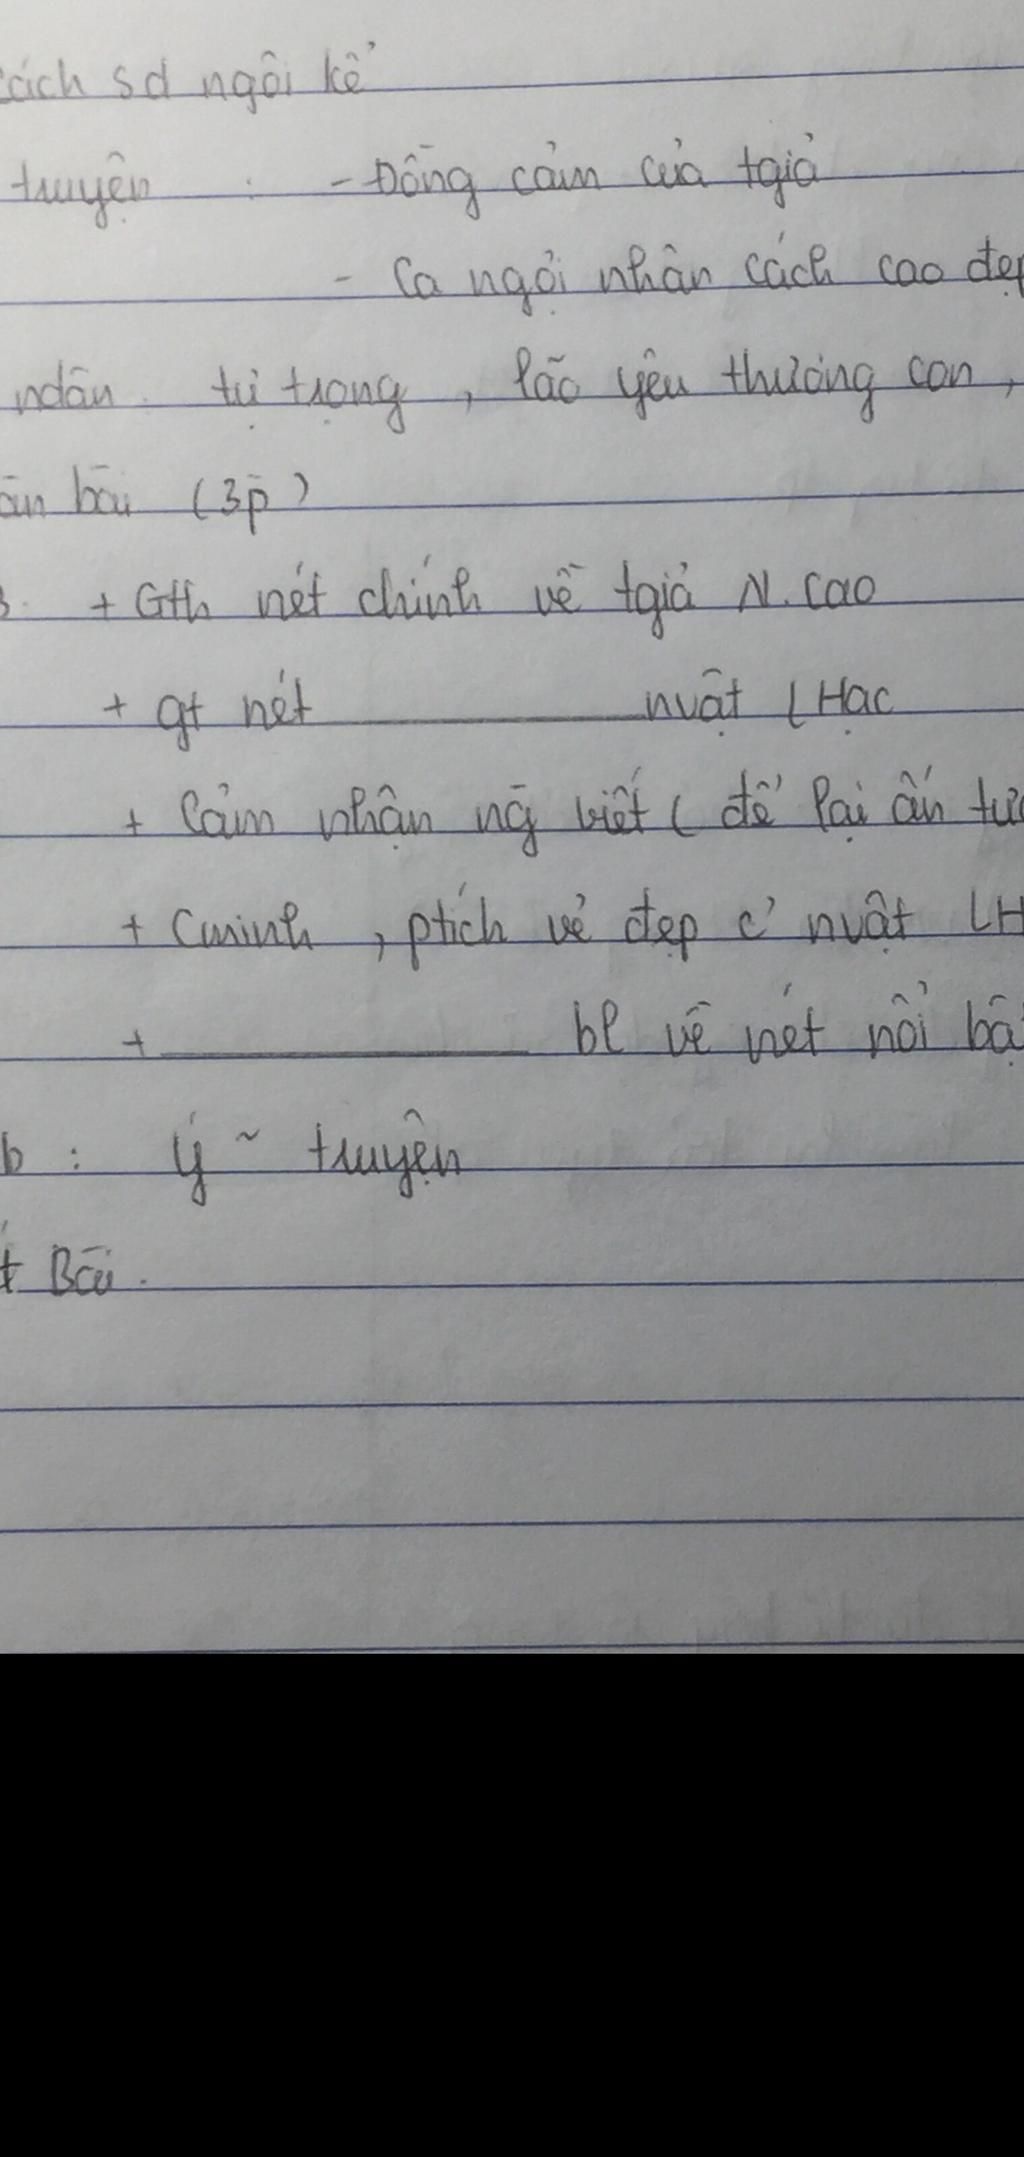 cách sd ngôi kể
truyện : - Đồng cảm của tgiả
- Ca ngợi nhân cách cao đẹp
ndân tự trọng, lão yêu thương con,
bài (3p)
+ Gth nét chính về tgiả N.Cao
+ gt nét ________ nvật LHạc
+ Cảm nhận ng̃ viết ( để lại ấn tượ
+ Cminh, ptích vẻ đẹp c' nvật LH
+ ________ bl về nét nổi bật
b : Ý ~ truyện
Bài.